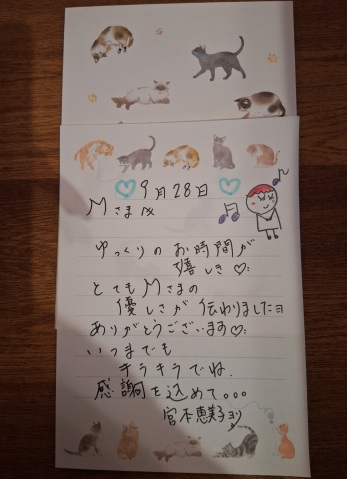 9月28日
Mさま
ゆっくりのお時間が
嬉しき♡
とてもMさまの
優しさが伝わりましたヨ
ありがとうございます♡
いつまでも
キラキラでね.
感謝を込めて...
宮本恵美子より